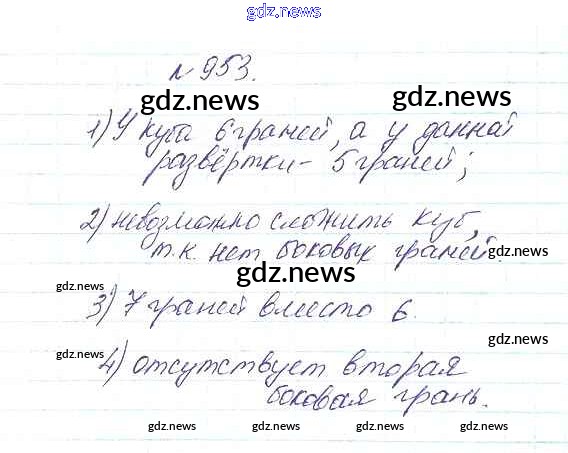 gdz.news
№ 953.
gdz.news gdz.news
1) У куба 6 граней, а у данной
развёртки - 5 граней;
2) невозможно сложить куб,
т.к. нет боковых граней.
gdz.news
gdz.news
3) 7 граней вместо 6.
gdz.news
gdz.news
4) отсутствует вторая
боковая грань.
gdz.news gdz.news gdz.news gdz.news